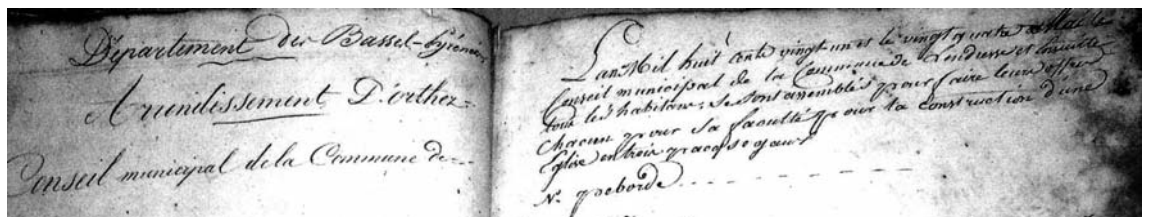 Département des Basses-Pyrénées
Arrondissement D'orthez
Conseil municipal de la Commune de
L'an Mil huit cents vingt un et le vingt quatre
Conseil municipal de la Commune de et
tous les habitans, se sont assemblés pour faire leurs offres
chacun pour sa faculté pour la construction d'une
Eglise en trois
N. peborde